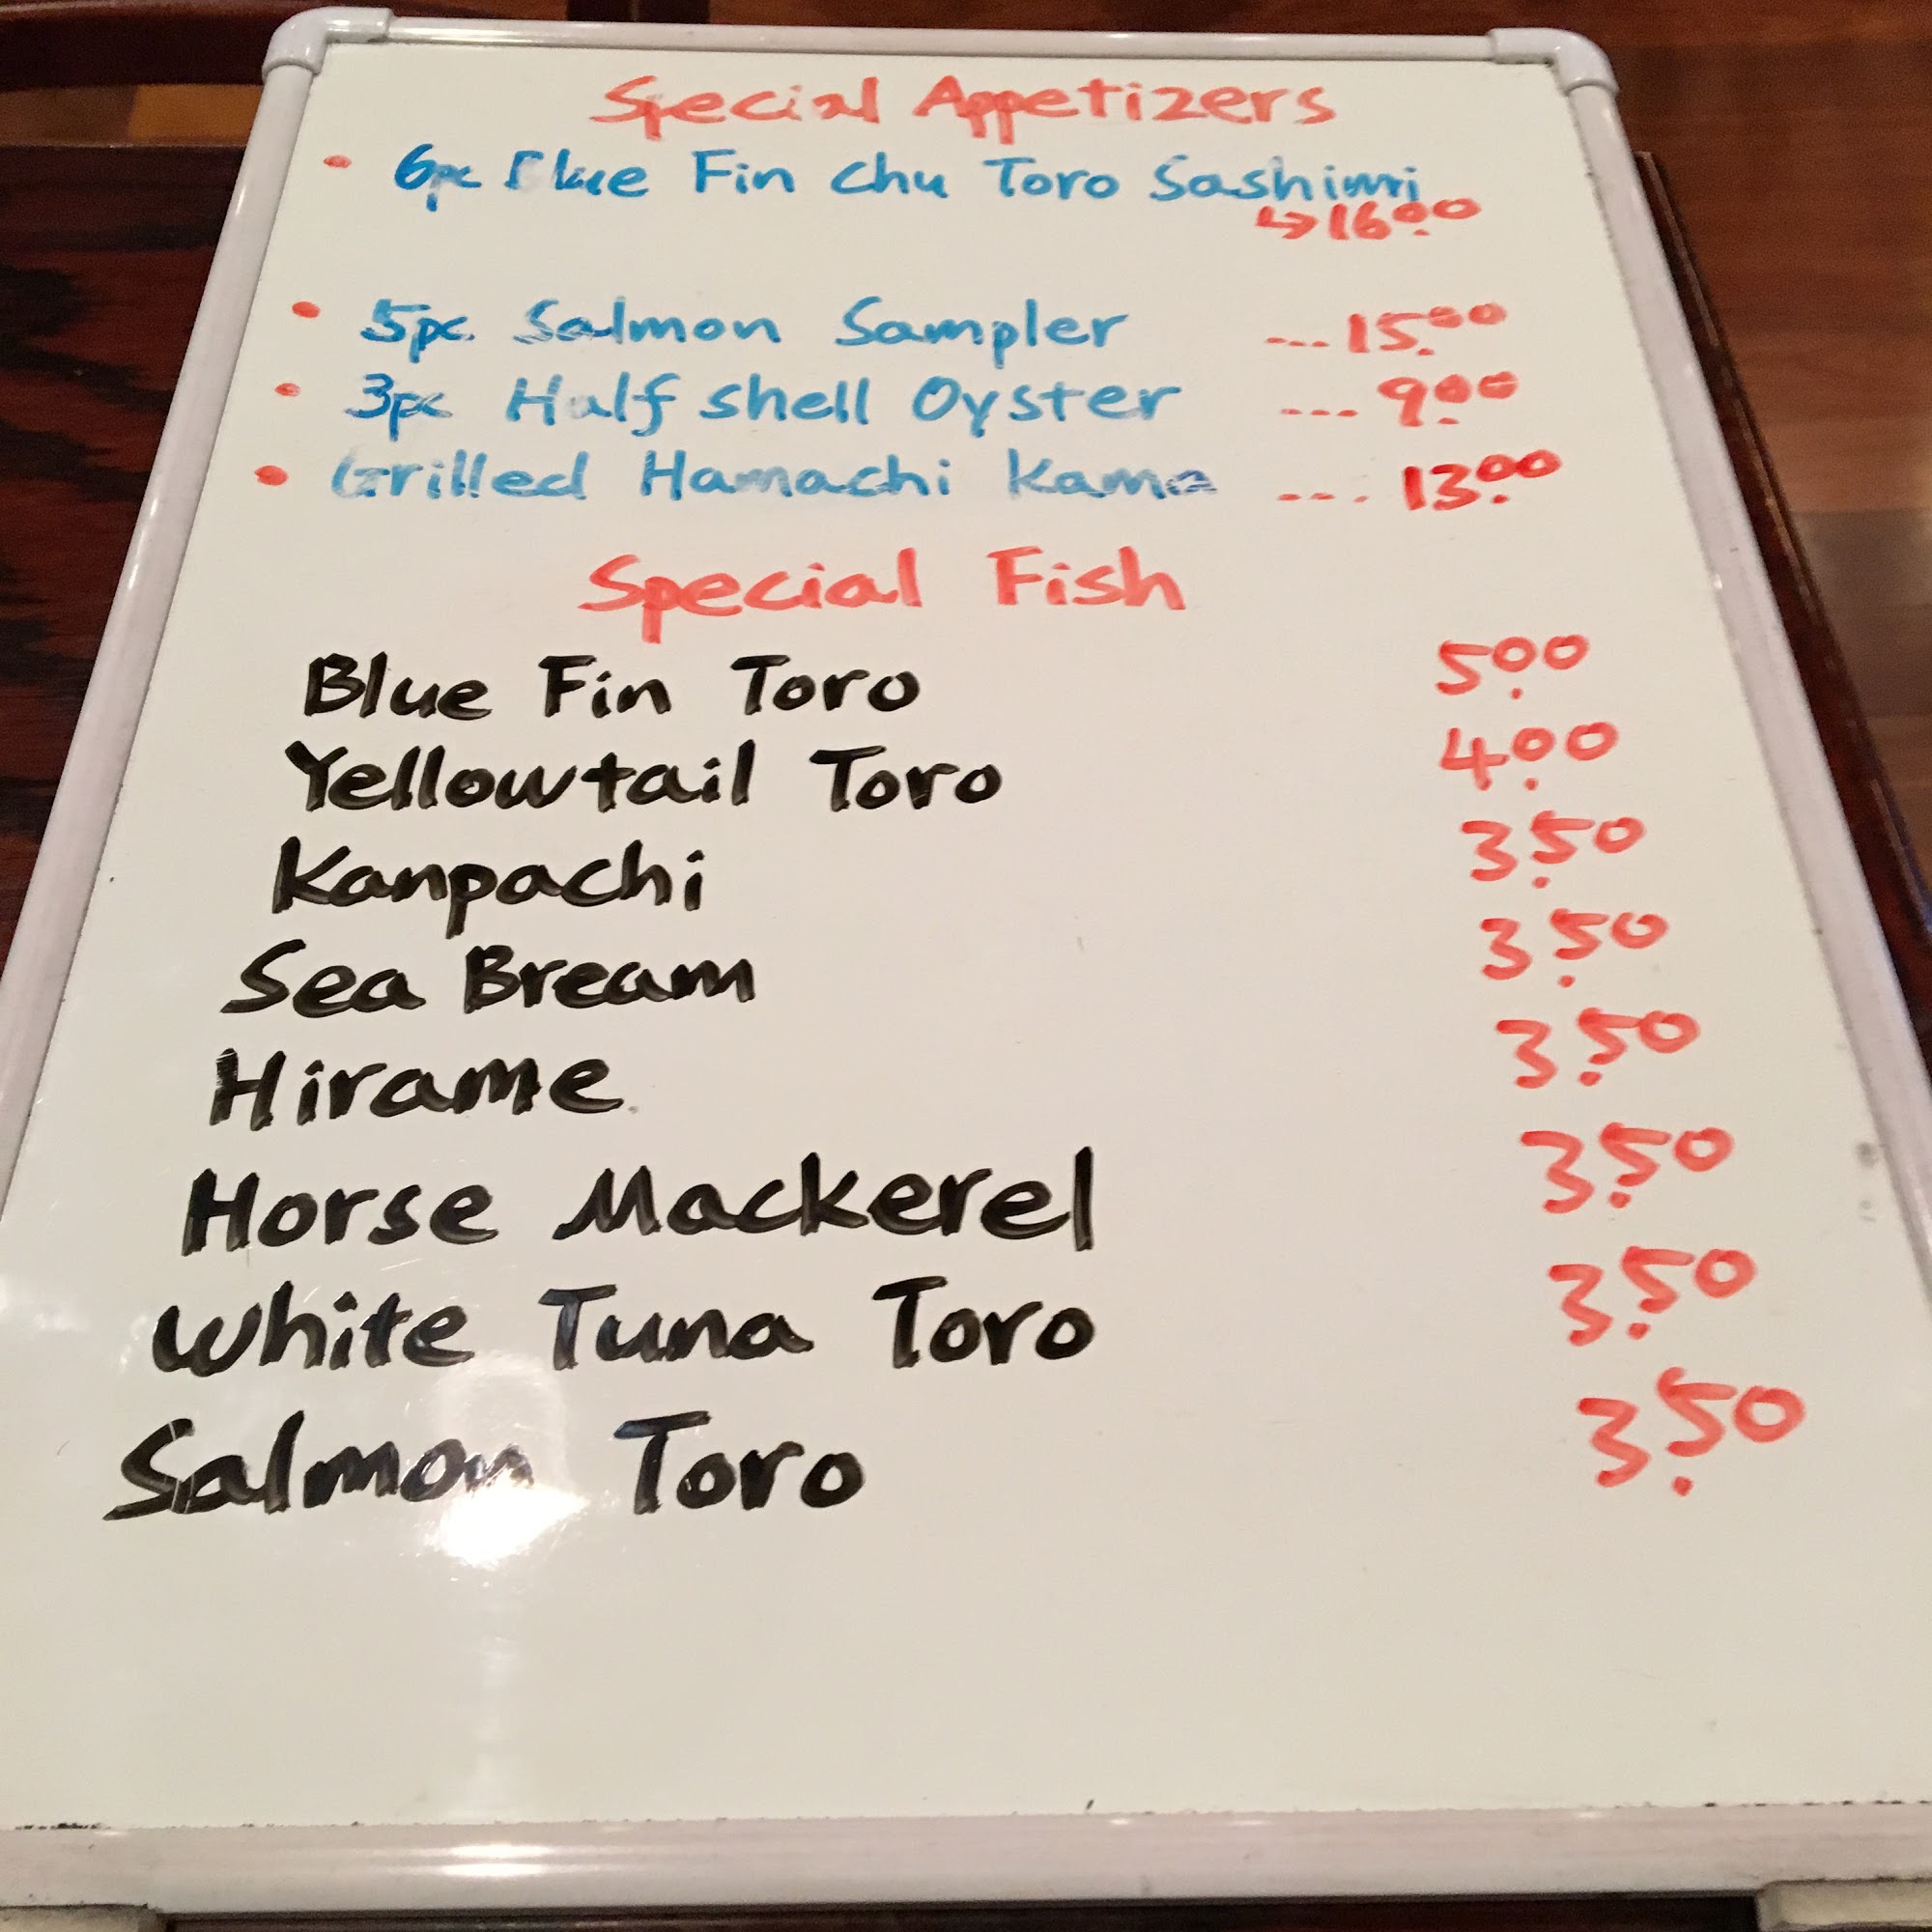 Special Appetizers
• 6pc Blue Fin Chu Toro Sashimi
↳ 16.00
• 5pc Salmon Sampler --- 15.00
• 3pc Half shell Oyster --- 9.00
• Grilled Hamachi Kama --- 13.00
Special Fish
Blue Fin Toro 5.00
Yellowtail Toro 4.00
Kanpachi 3.50
Sea Bream 3.50
Hirame 3.50
Horse Mackerel 3.50
White Tuna Toro 3.50
Salmon Toro 3.50